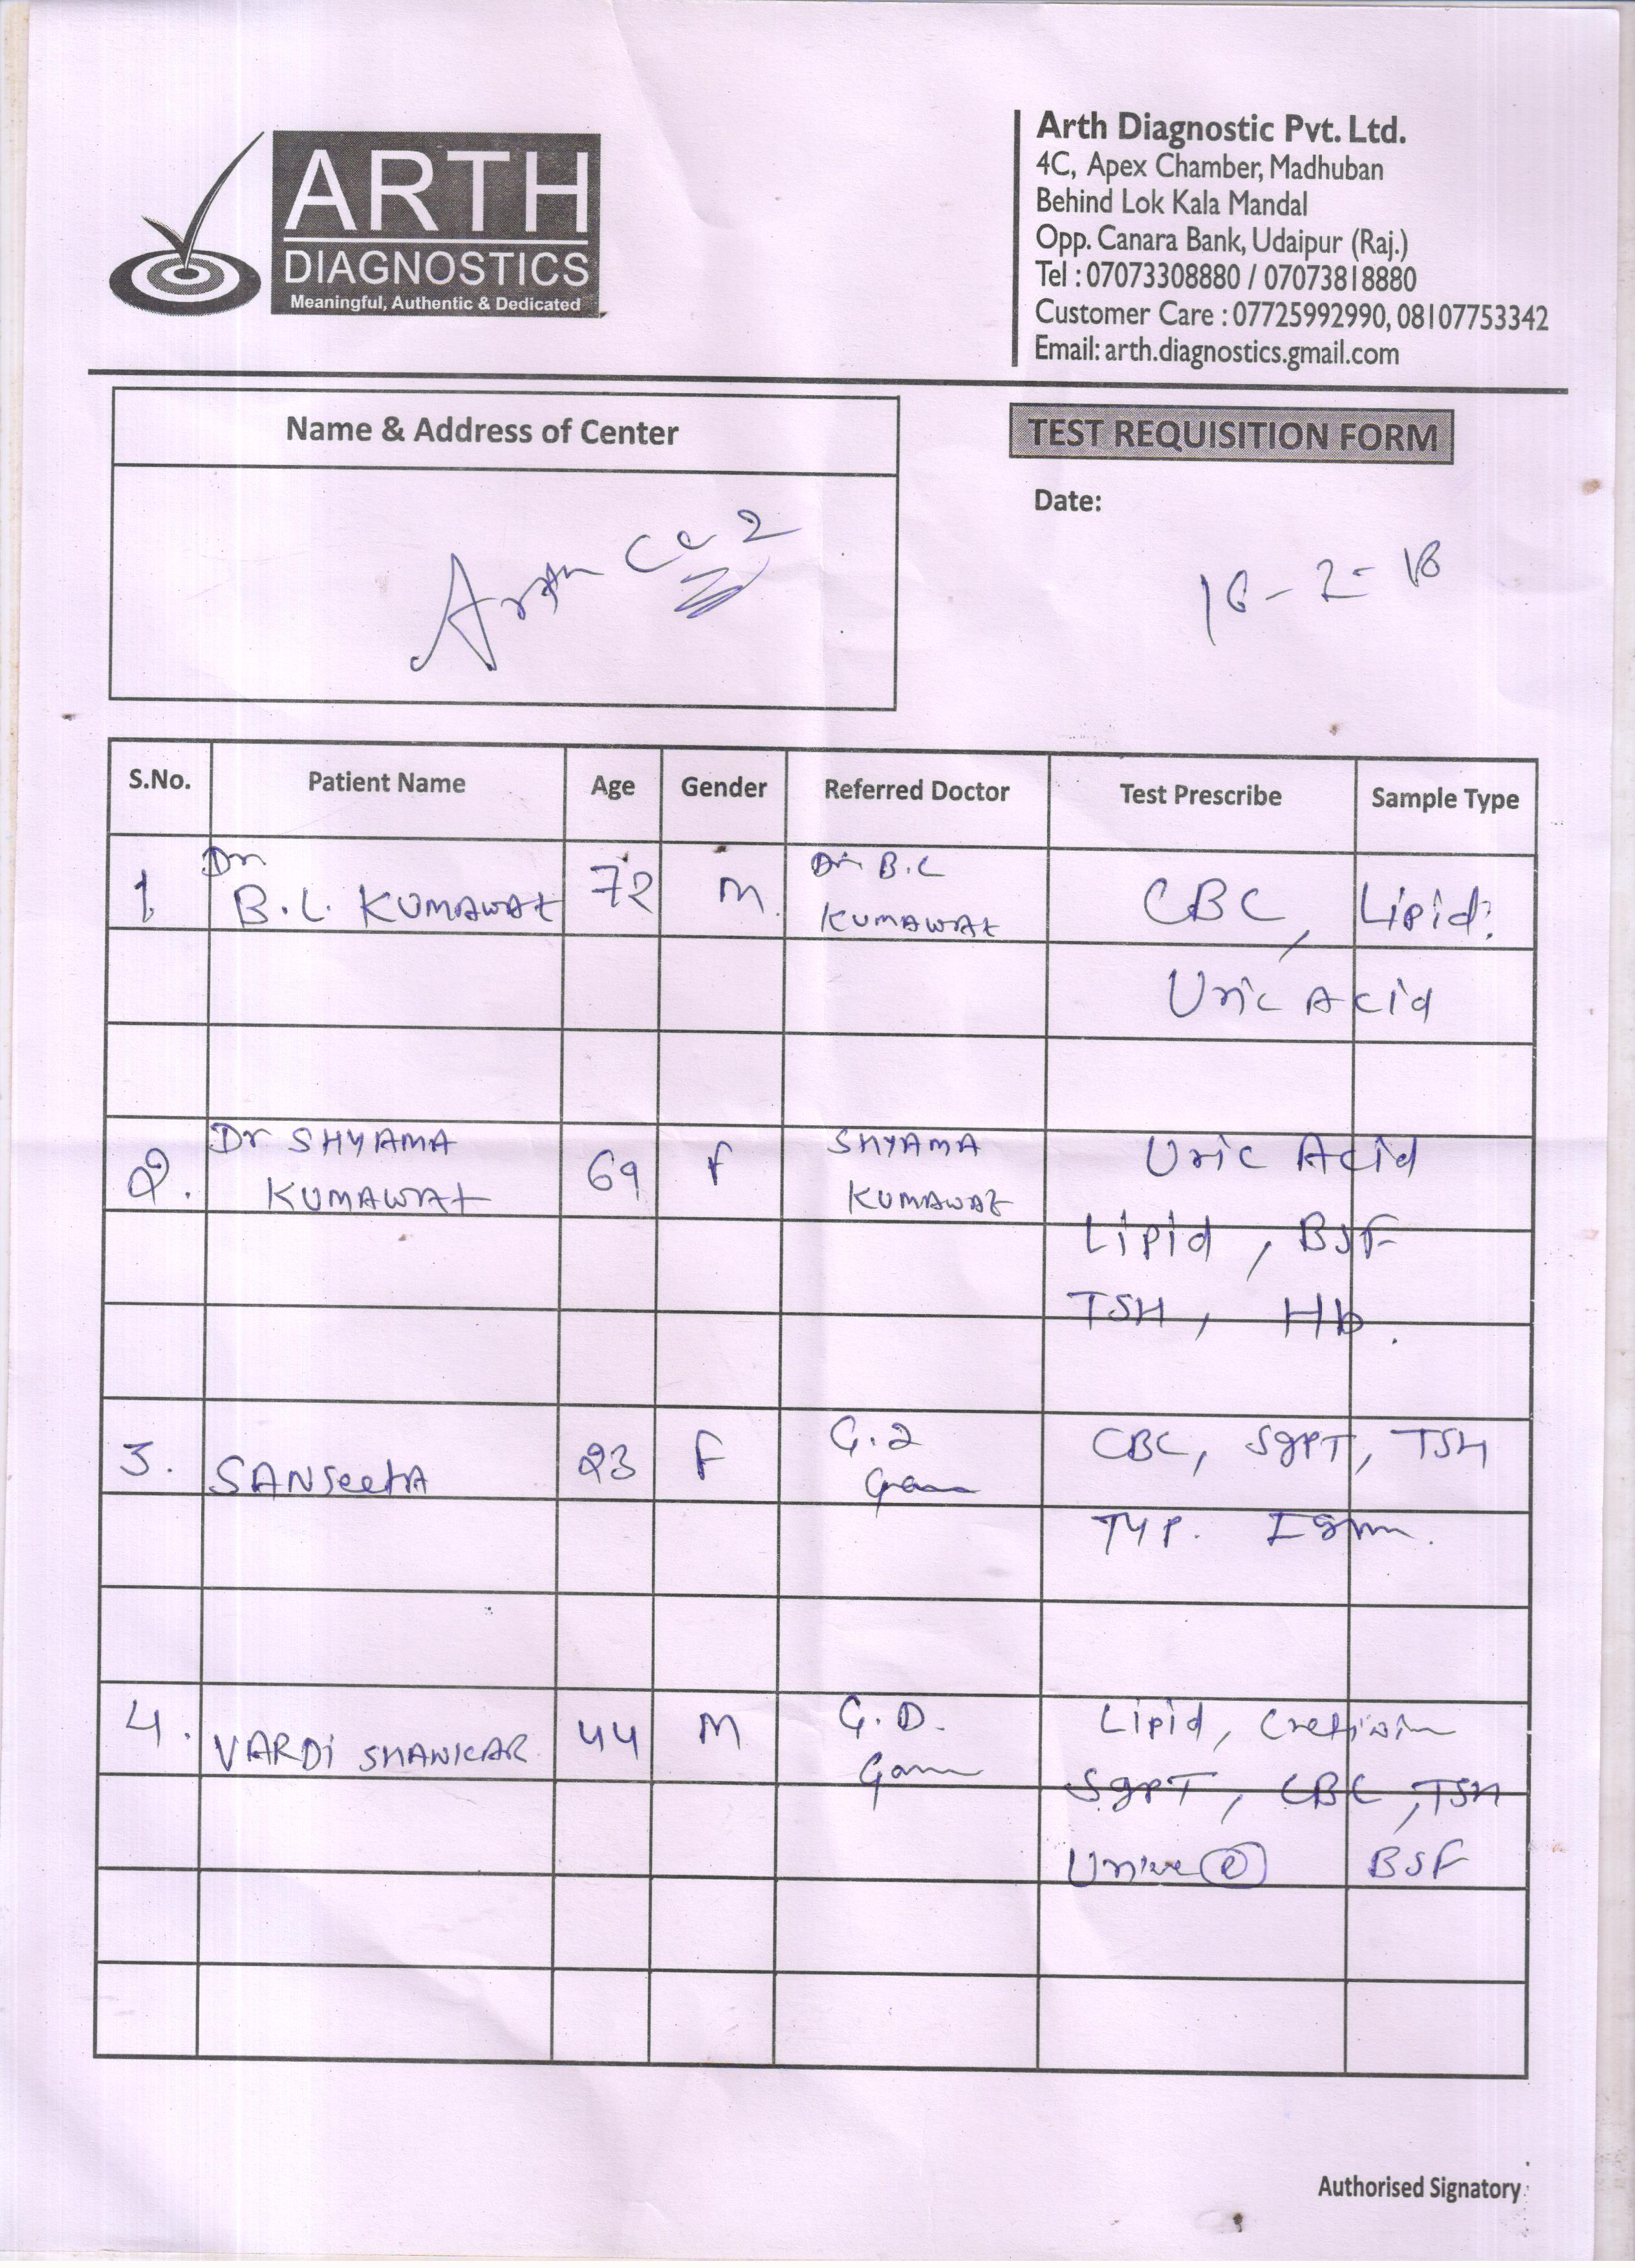 ARTH
DIAGNOSTICS
Meaningful, Authentic & Dedicated
Arth Diagnostic Pvt. Ltd.
4C, Apex Chamber, Madhuban
Behind Lok Kala Mandal
Opp. Canara Bank, Udaipur (Raj.)
Tel : 07073308880 / 07073818880
Customer Care : 07725992990, 08107753342
Email: arth.diagnostics.gmail.com
Name & Address of Center
TEST REQUISITION FORM
Date:
16-2-18
S.No. Patient Name Age Gender Referred Doctor Test Prescribe Sample Type
1. Dr B.L. KUMAWAt 72 M Dr B.L KUMAWAt CBC, Lipid.
Uric Acid
2. Dr SHYAMA KUMAWAt 69 F SHYAMA KUMAWAt Uric Acid
Lipid, BSF
TSH, Hb.
3. SANgeetA 23 F CBC, SgPT, TSH
TYP. Igm.
4. VARDI SHANKAR 44 M G.D. Lipid, Cretinin
SgPT, CBC, TSH
BSF
Authorised Signatory